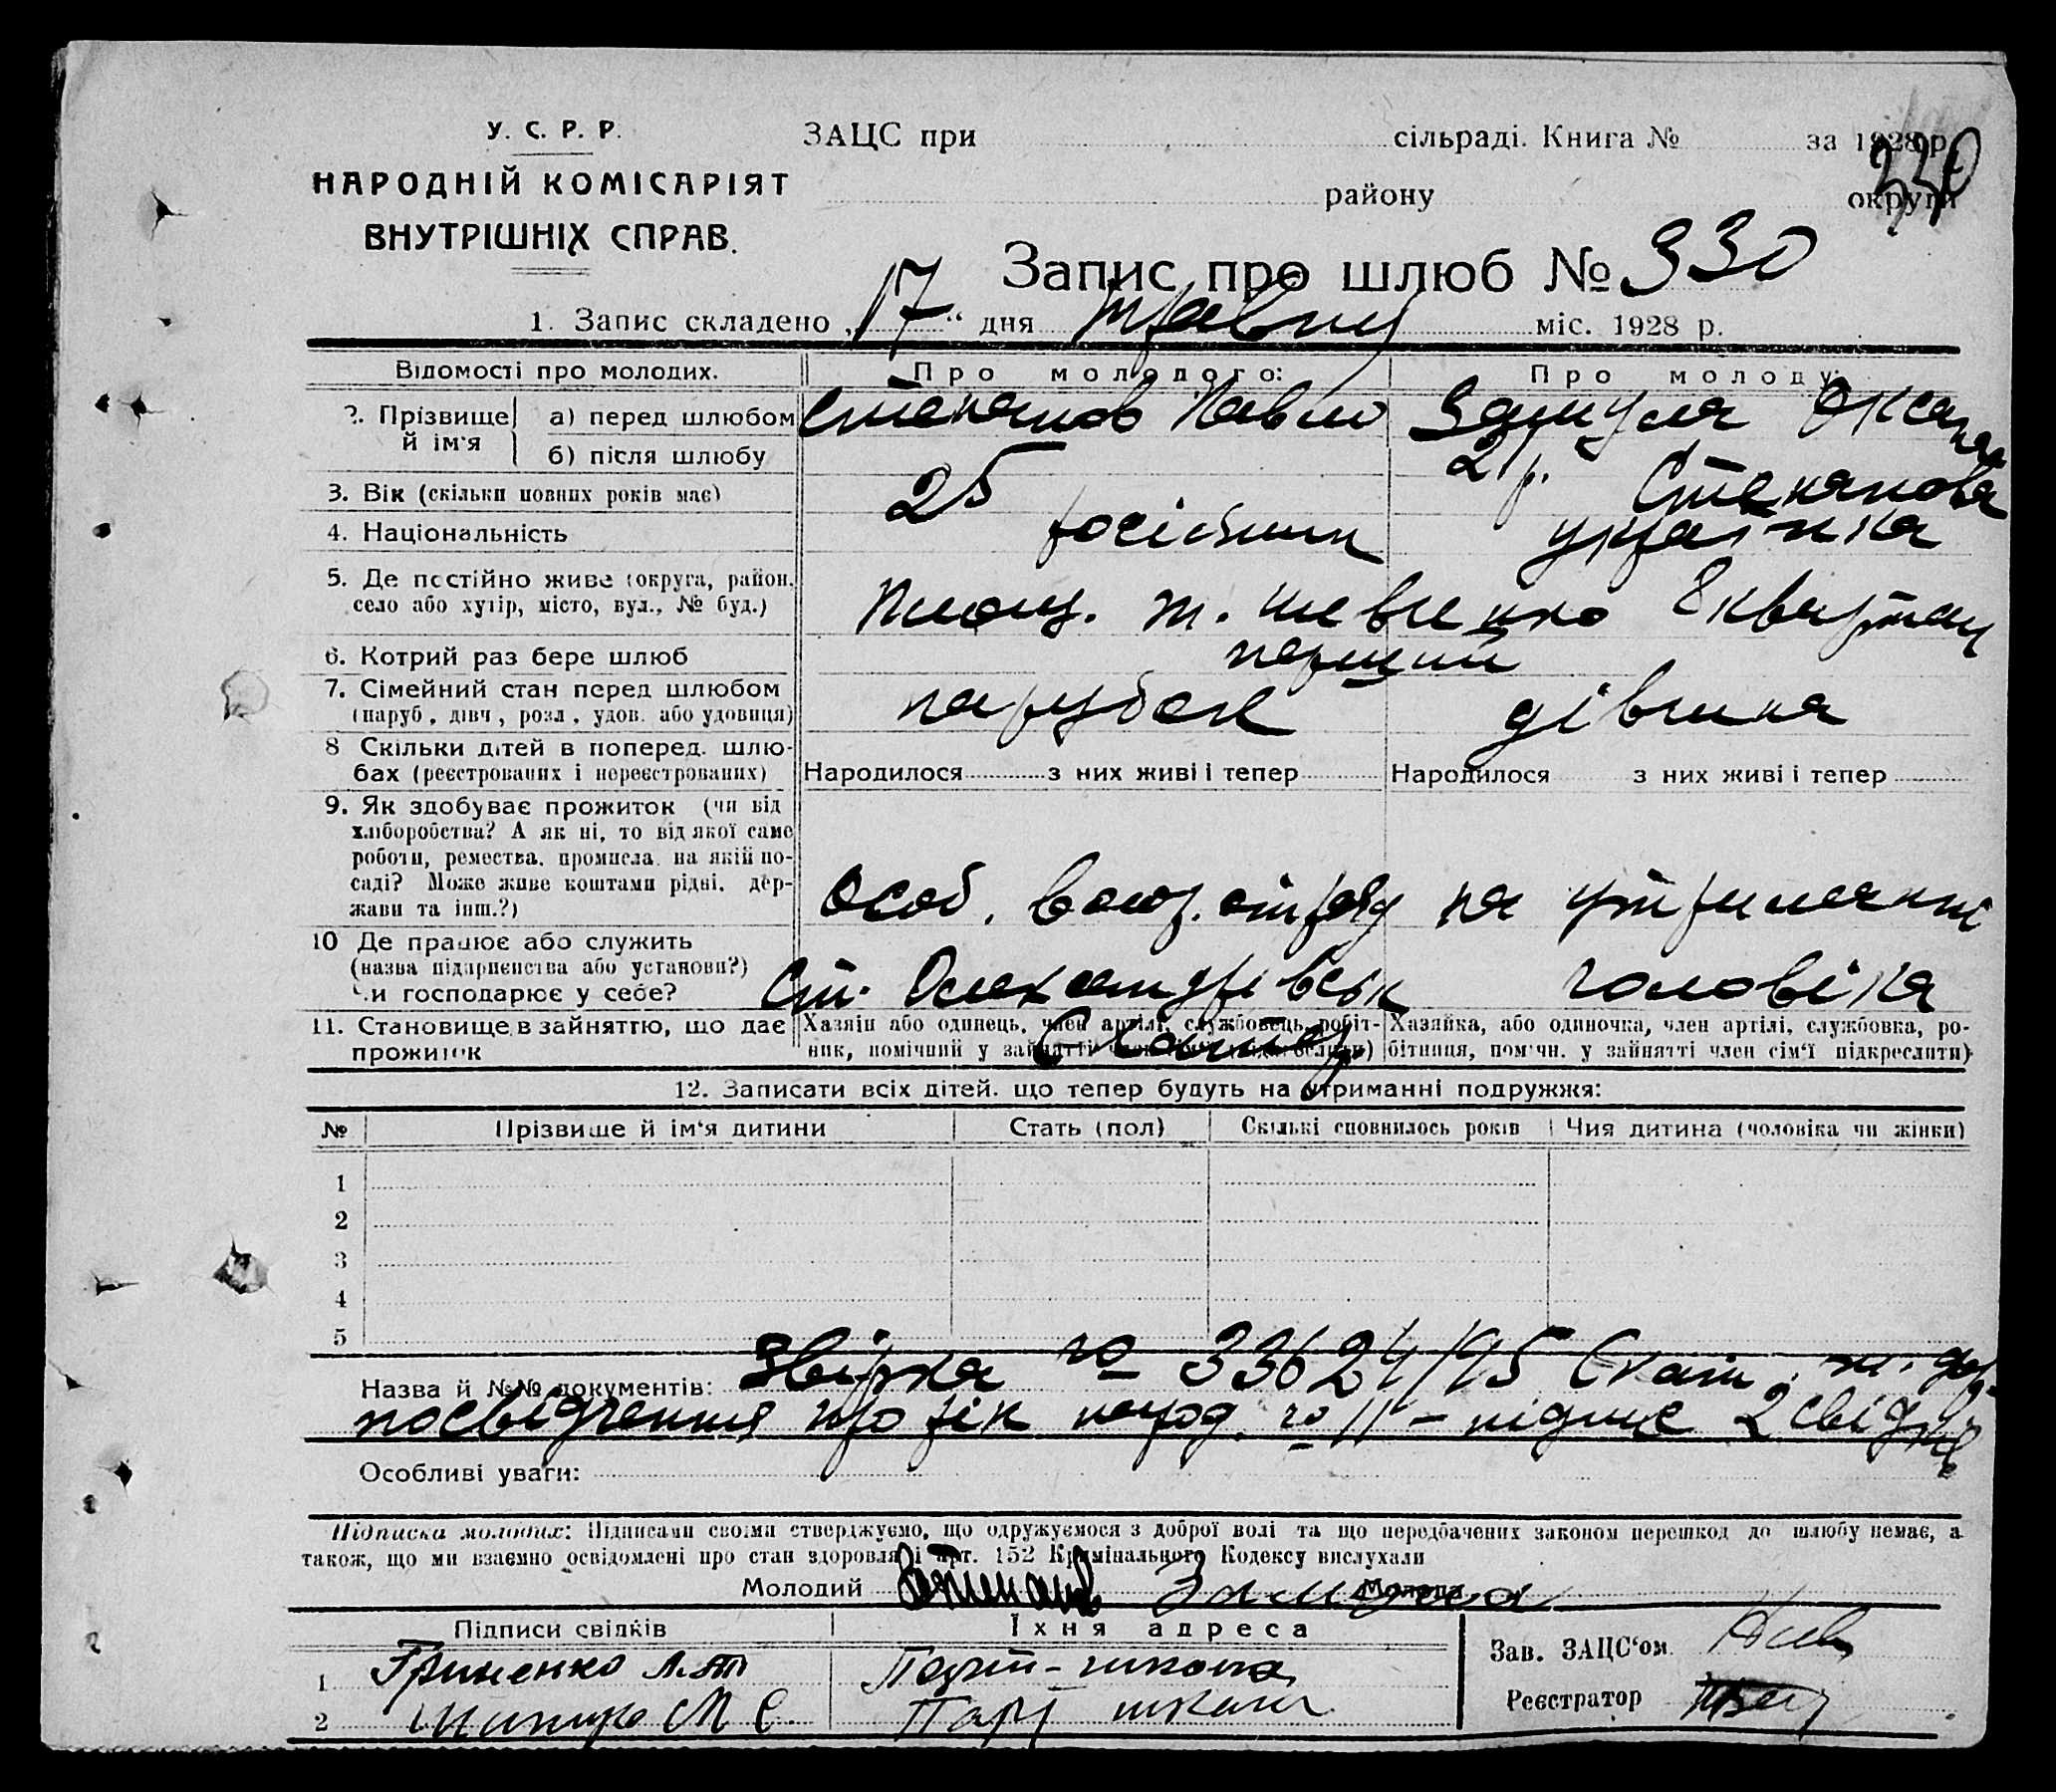 У. С. Р. Р.
НАРОДНІЙ КОМІСАРІЯТ
ВНУТРІШНІХ СПРАВ.
ЗАЦС при сільраді. Книга № за 1928 р.
району округи
330
Запис про шлюб № 330
1. Запис складено „17“ дня травня міс. 1928 р.
Відомості про молодих. Про молодого: Про молоду:
2. Прізвище й ім'я а) перед шлюбом Степанов Павло Замула Оксана
б) після шлюбу Степанова
3. Вік (скільки повних років має) 25 21 р.
4. Національність росіянин українка
5. Де постійно живе (округа, район, село або хутір, місто, вул., № буд.) площ. т. Шевченко 8 квартал
6. Котрий раз бере шлюб перший
7. Сімейний стан перед шлюбом (паруб., дівч., розл., удов. або удовиця) парубок дівчина
8 Скільки дітей в поперед. шлюбах (реєстрованих і нереєстрованих) Народилося з них живі і тепер Народилося з них живі і тепер
9. Як здобуває прожиток (чи від
хліборобства? А як ні, то від якої саме
роботи, ремества, промисла, на якій по-
саді? Може живе коштами рідні, дер-
жави та інш.?)
Особ. отряд на утриманні
10 Де працює або служить
(назва підприємства або установи?)
Чи господарює у себе?
Ст. Олександрівськ чоловіка
11. Становище в зайняттю, що дає прожиток
Хазяїн або одинець, член артілі, службовець, робіт-
ник, помічний у зайнятті член сім'ї (підкреслити)
Хазяйка, або одиночка, член артілі, службовка, ро-
бітниця, помічн. у зайнятті член сім'ї підкреслити)
12. Записати всіх дітей, що тепер будуть на утриманні подружжя:
№ Прізвище й ім'я дитини Стать (пол) Скількі сповнилось років Чия дитина (чоловіка чи жінки)
1
2
3
4
5
Назва й №№ документів: Звірка № 33624/95 Скат.
посвідчення про рік народ. № 11 - підпис 2 свідків
Особливі уваги:
Підписка молодих: Підписами своїми стверджуємо, що одружуємося з доброї волі та що передбачених законом перешкод до шлюбу немає, а
також, що ми взаємно освідомлені про стан здоровля і арт. 152 Кримінального Кодексу вислухали
Молодий Степанов Молода Замула
Підписи свідків Їхня адреса
1 Гриненко Парт-школа
2 М С. Парт школа
Зав. ЗАЦС'ом
Реєстратор